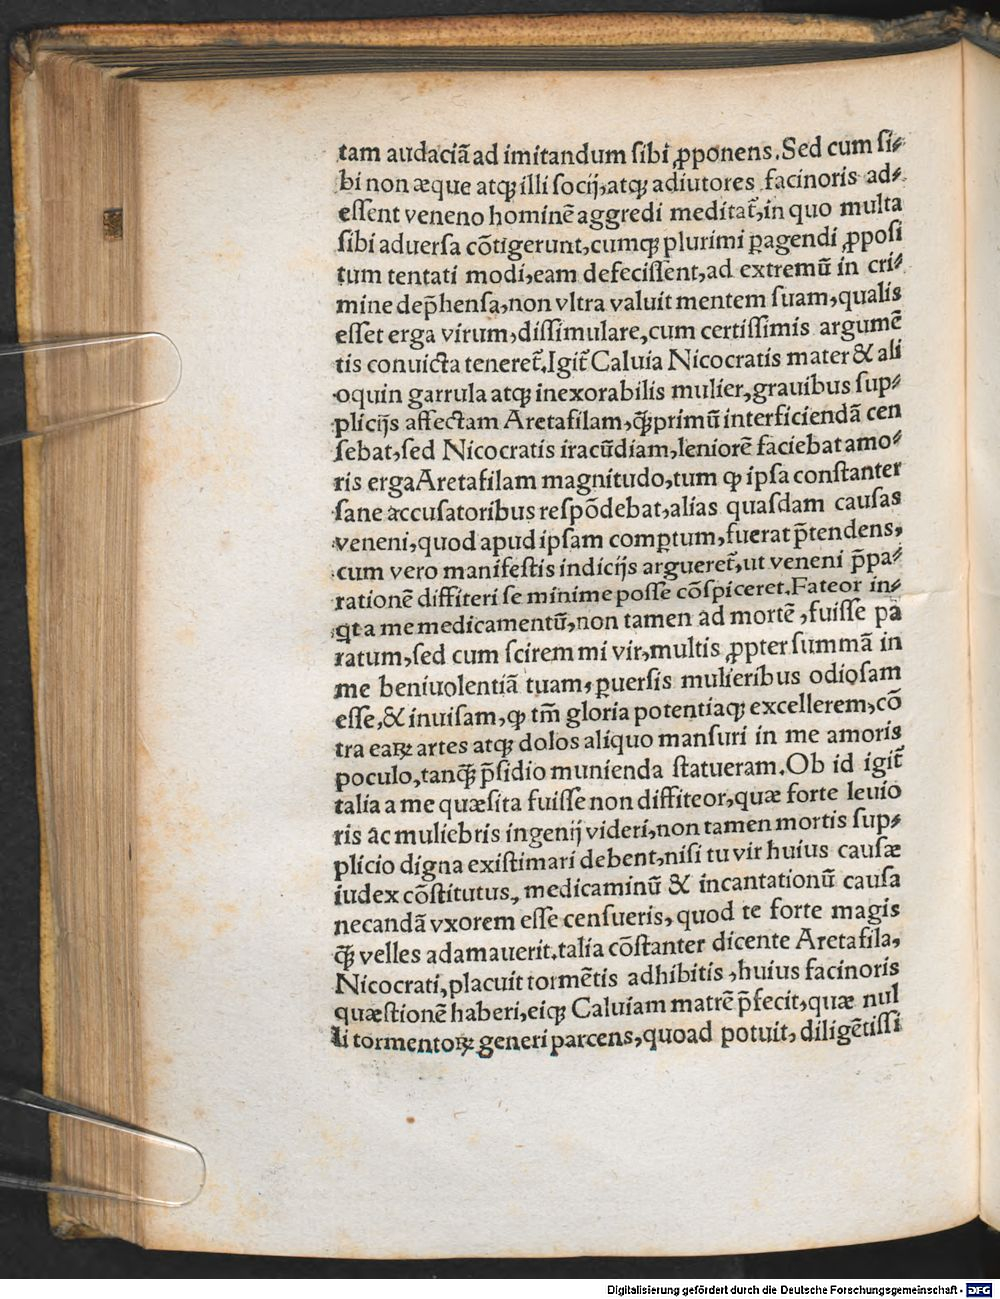 tam audaciã ad imitandum ſibi ꝓponens. Sed cum ſi⸗
bi non æque atqꝫ illi ſocij, atqꝫ adiutores facinoris ad⸗
eſſent veneno hominẽ aggredi meditat᷑, in quo multa
ſibi aduerſa cõtigerunt, cumqꝫ plurimi ꝑagendi ꝓpoſi
tum tentati modi, eam defeciſſent, ad extremũ in cri⸗
mine dep̃henſa, non vltra valuit mentem ſuam, qualis
eſſet erga virum, diſſimulare, cum certiſſimis argumẽ
tis conuicta teneret᷑. Igit᷑ Caluia Nicocratis mater & ali
oquin garrula atqꝫ inexorabilis mulier, grauibus ſup⸗
plicijs affectam Aretafilam, q̃ꝫprimũ interficiendã cen
ſebat, ſed Nicocratis iracũdiam, leniorẽ faciebat amo⸗
ris erga Aretafilam magnitudo, tum ꝙ ipſa conſtanter
ſane accuſatoribus reſpõdebat, alias quaſdam cauſas
veneni, quod apud ipſam comptum, fuerat p̃tendens,
cum vero manifeſtis indicijs argueret᷑, ut veneni p̃pa⸗
rationẽ diffiteri ſe minime poſſe cõſpiceret. Fateor in⸗
qt a me medicamentũ, non tamen ad mortẽ, fuiſſe pa
ratum, ſed cum ſcirem mi vir, multis ꝓpter ſummã in
me beniuolentiã tuam, ꝑuerſis mulieribus odioſam
eſſe, & inuiſam, ꝙ tm̃ gloria potentiaqꝫ excellerem, cõ
tra eaꝝ artes atqꝫ dolos aliquo manſuri in me amoris
poculo, tanq̃ꝫ p̃ſidio munienda ſtatueram. Ob id igit᷑
talia a me quæſita fuiſſe non diffiteor, quæ forte leuio
ris ac muliebris ingenij videri, non tamen mortis ſup⸗
plicio digna exiſtimari debent, niſi tu vir huius cauſæ
iudex cõſtitutus, medicaminũ & incantationũ cauſa
necandã vxorem eſſe cenſueris, quod te forte magis
q̃ꝫ velles adamauerit. talia cõſtanter dicente Aretafila,
Nicocrati, placuit tormẽtis adhibitis, huius facinoris
quæſtionẽ haberi, eiqꝫ Caluiam matrẽ p̃fecit, quæ nul
li tormentoꝝ generi parcens, quoad potuit, diligẽtiſſi
Digitalisierung gefördert durch die Deutsche Forschungsgemeinschaft - DFG